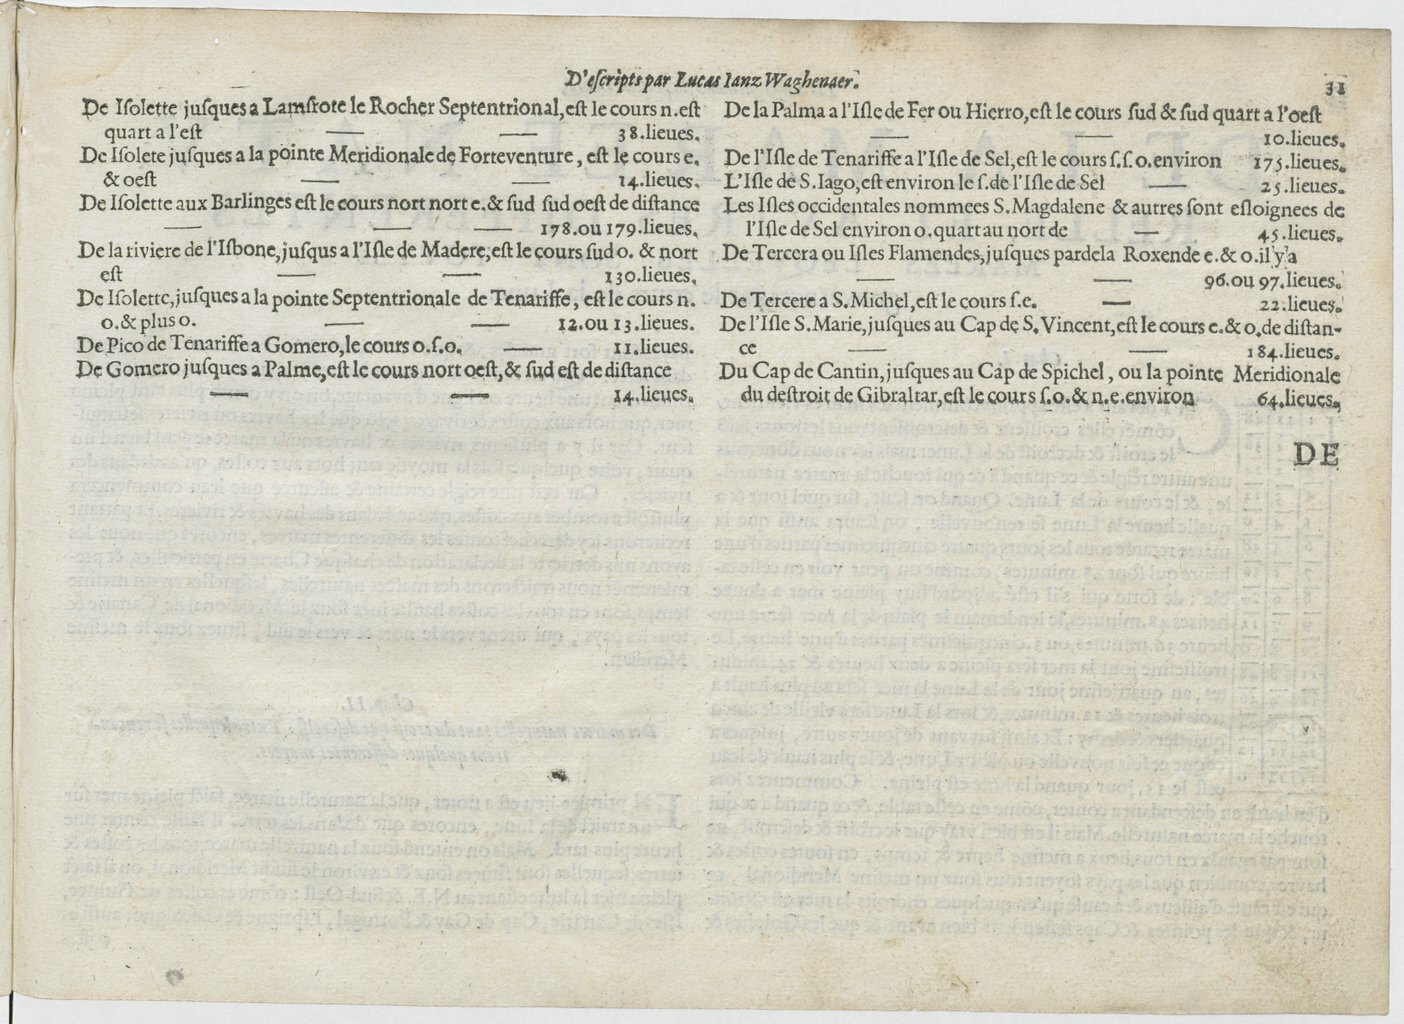 D'eſcripts par Lucas Ianz Waghenaer.
31
De Iſolette juſques a Lamſrote le Rocher Septentrional, eſt le cours n.eſt
quart a l'eſt — — 38.lieues.
De Iſolete juſques a la pointe Meridionale de Forteventure, eſt le cours e.
& oeſt — — 14.lieues.
De Iſolette aux Barlinges eſt le cours nort nort e. & ſud ſud oeſt de diſtance
— — — 178.ou 179.lieues.
De la riviere de l'Iſbone, juſqus a l'Iſle de Madere, eſt le cours ſud o. & nort
eſt — — 130.lieues.
De Iſolette, juſques a la pointe Septentrionale de Tenariffe, eſt le cours n.
o. & plus o. — — 12.ou 13.lieues.
De Pico de Tenariffe a Gomero, le cours o.ſ.o. — 11.lieues.
De Gomero juſques a Palme, eſt le cours nort oeſt, & ſud eſt de diſtance
— — 14.lieues.
De la Palma a l'Iſle de Fer ou Hierro, eſt le cours ſud & ſud quart a l'oeſt
— — 10.lieues.
De l'Iſle de Tenariffe a l'Iſle de Sel, eſt le cours ſ.ſ.o. environ 175.lieues.
L'Iſle de S.Iago, eſt environ le ſ. de l'Iſle de Sel — 25.lieues.
Les Iſles occidentales nommees S.Magdalene & autres ſont eſloignees de
l'Iſle de Sel environ o.quart au nort de — 45.lieues.
De Tercera ou Iſles Flamendes, juſques pardela Roxende e. & o. il y'a
— — 96.ou 97.lieues.
De Tercere a S.Michel, eſt le cours ſ.e. — 22.lieues.
De l'Iſle S.Marie, juſques au Cap de S.Vincent, eſt le cours e. & o. de diſtan-
ce — — 184.lieues.
Du Cap de Cantin, juſques au Cap de Spichel, ou la pointe Meridionale
du deſtroit de Gibraltar, eſt le cours ſ.o. & n.e. environ 64.lieues.
DE